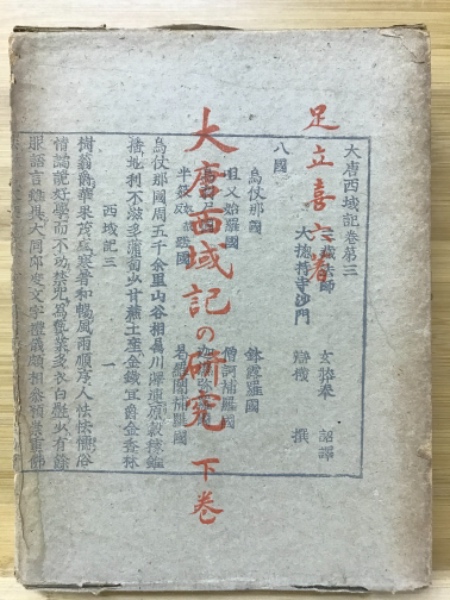 足立喜六著
大唐西域記の研究 下巻
大唐西域記卷第三
三藏法師 玄奘奉 詔譯
大摠持寺沙門 辯機 撰
八國
烏仗那國 鉢露羅國
呾叉始羅國 僧訶補羅國
烏仗那國周五千餘里山谷相屬川澤連原穀稼雖
播地利不滋多蒲萄少甘蔗土產金鐵宜鬱金香林
樹蓊鬱華果茂盛寒暑和暢風雨順序人性怯懦俗
情譎詭好學而不功禁呪爲藝業多衣白㲲少有餘
服語言雖異大同印度文字禮儀頗相參預崇重佛
西域記三 一